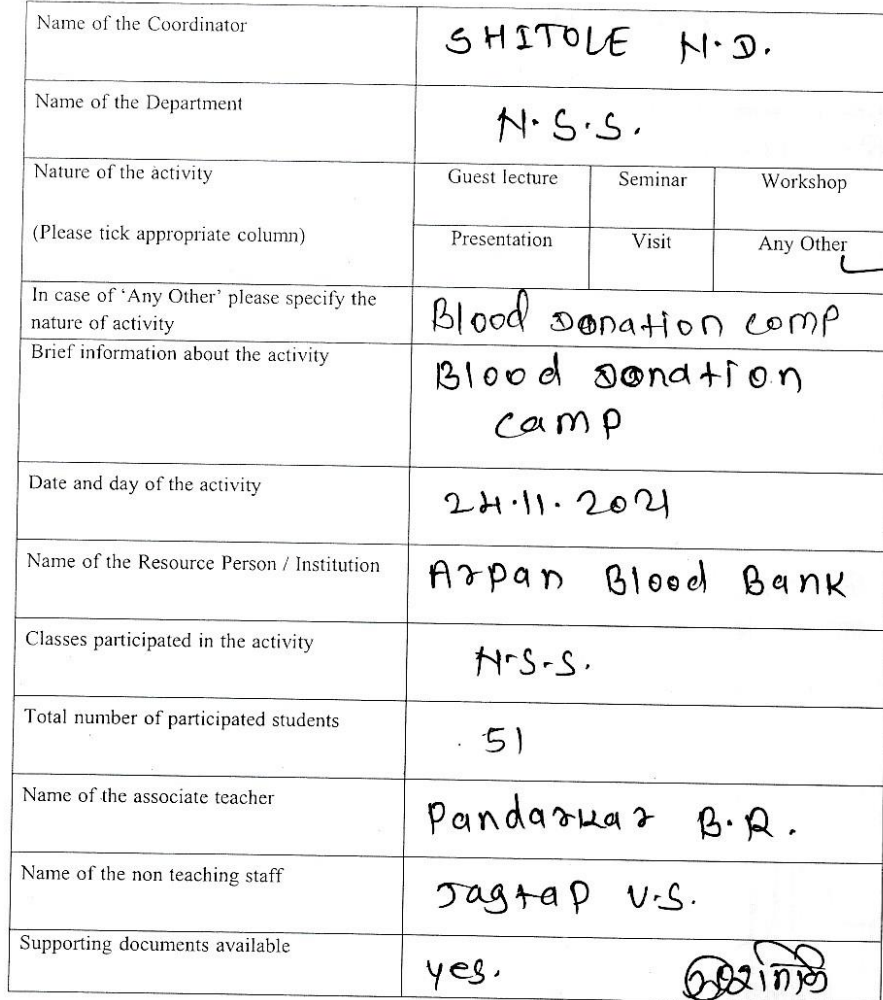 Name of the Coordinator
SHITOLE N.D.
Name of the Department
N.S.S.
Nature of the activity
Guest lecture Seminar Workshop
(Please tick appropriate column)
Presentation Visit Any Other
In case of ‘Any Other’ please specify the
nature of activity
Blood Donation comp
Brief information about the activity
Blood Donation
camp
Date and day of the activity
24.11.2021
Name of the Resource Person / Institution
Arpan Blood Bank
Classes participated in the activity
N-S-S.
Total number of participated students
51
Name of the associate teacher
Pandarkar B.R.
Name of the non teaching staff
Jagtap V.S.
Supporting documents available
yes.